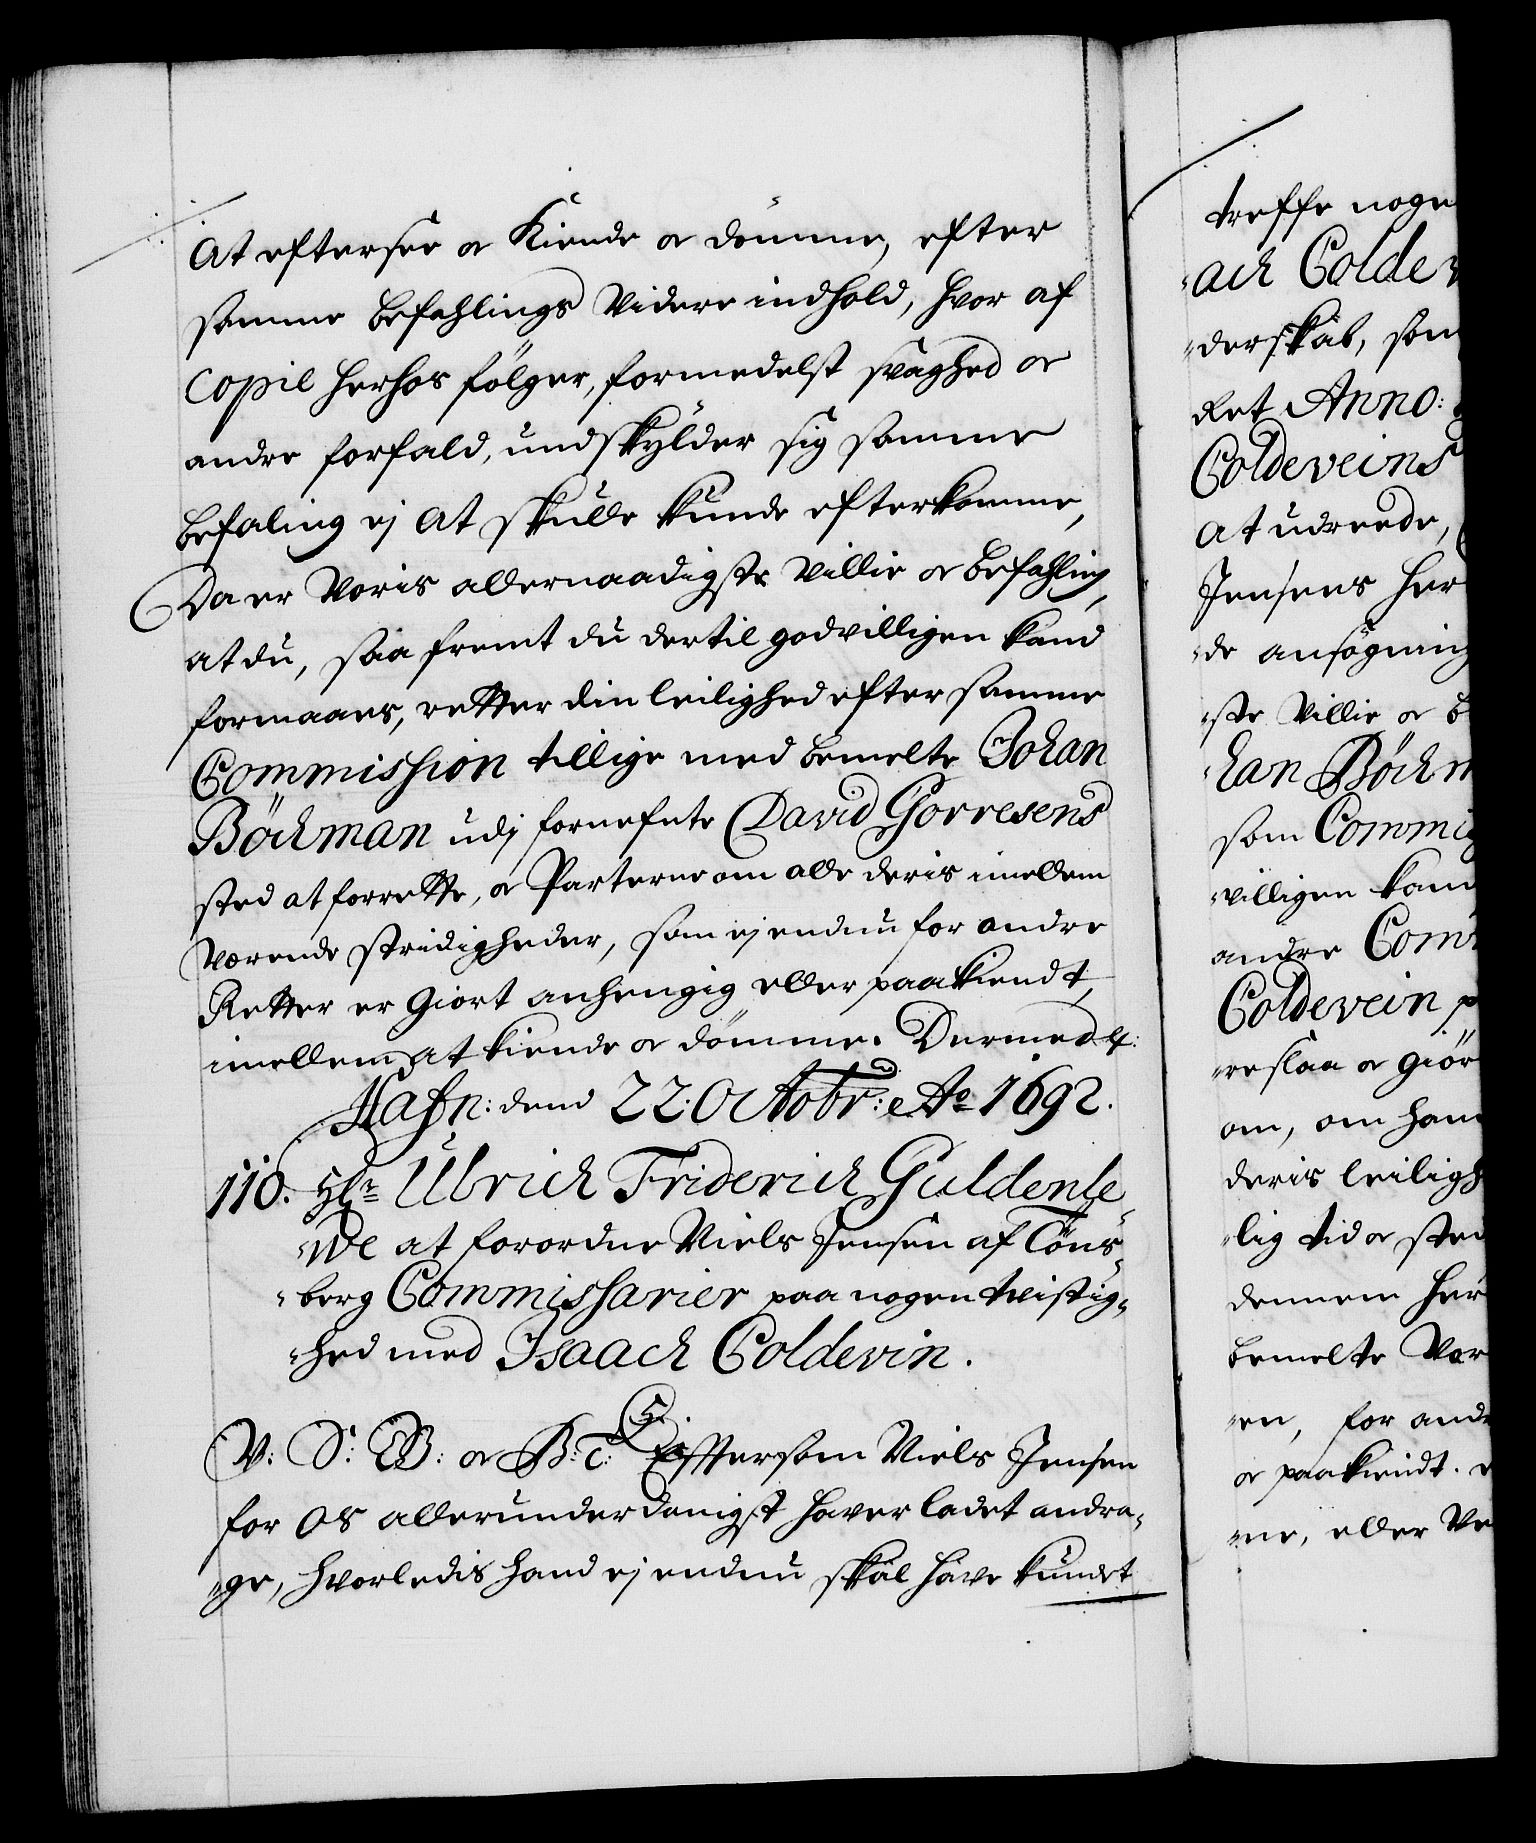 At eftersee oc Kiende oc dömme, efter
samme befahlings videre indhold, hvor af
Copie herhos fölger, formedelst svaghed oc
andre forfald, undskylder sig samme
befaling ej at skulle kunde efterkomme,
Da er Voris allernaadigste villie oc befahling,
at du, saa fremt du dertil godvilligen kand
formaaes, retter din leilighed efter samme
Commission tillige med bemelte Johan
Böckman udj fornefnte David Gorresens
sted at forrette, oc Parterne om alle deris imellem
værende stridigheder, som ej endnu for andre
Retter er giort anhengig eller paakiendt,
imellem at kiende oc dömme. Dermed &:
Hafn: dend 22. Octobr: Ao 1692.
110. Hr Ulrich Friderich Guldenle-
-we at forordne Niels Jensen af Töns-
-berg Commissarier paa nogen tvistig-
-hed med Isaach Coldevin.
V: S: G: oc B: T: Eftersom Niels Jensen
for OS allerunderdanigst haver ladet andra-
-ge, hvorledis hand ej endnu skal have kundet
treffe noge
-ach Colde
-derskab, som
Ret Anno:
Coldeveins
at udreede,
Jensens her
-de ansögning
-ste Villie oc b
-han Böckm
som Commis
-villigen kand
andre Com
Coldevein p
-reslaa oc giör
om, om hand
deris leiligh
-lig tid oc sted
dennem her
bemelte Vær
-en, for andr
oc paakiendt.
-ne, eller Ve